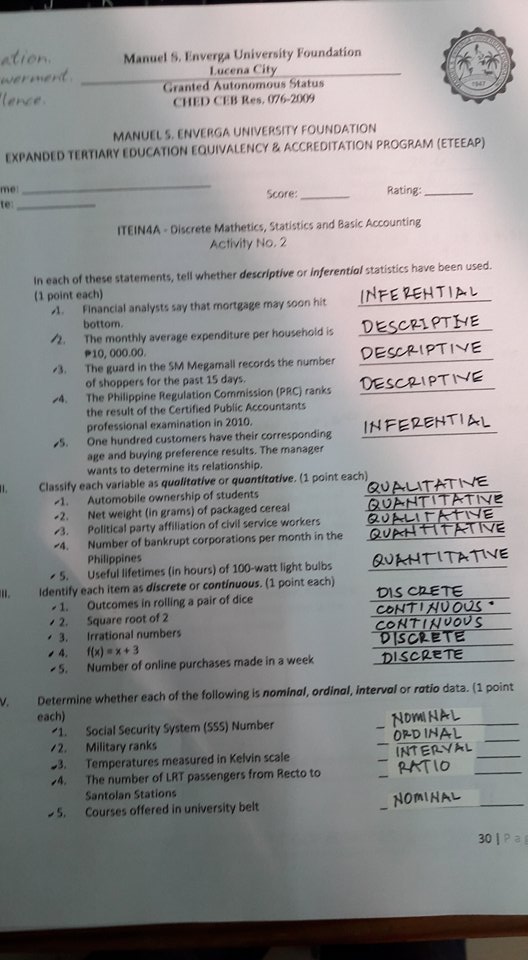 ation.
werment.
lence.
Manuel S. Enverga University Foundation
Lucena City
Granted Autonomous Status
CHED CEB Res. 076-2009
1947
MANUEL S. ENVERGA UNIVERSITY FOUNDATION
EXPANDED TERTIARY EDUCATION EQUIVALENCY & ACCREDITATION PROGRAM (ETEEAP)
me: Score: Rating:
te:
ITEIN4A - Discrete Mathetics, Statistics and Basic Accounting
Activity No. 2
In each of these statements, tell whether descriptive or inferential statistics have been used.
(1 point each)
1. Financial analysts say that mortgage may soon hit INFERENTIAL
bottom.
2. The monthly average expenditure per household is DESCRIPTIVE
₱10, 000.00.
3. The guard in the SM Megamall records the number DESCRIPTIVE
of shoppers for the past 15 days.
4. The Philippine Regulation Commission (PRC) ranks DESCRIPTIVE
the result of the Certified Public Accountants
professional examination in 2010.
5. One hundred customers have their corresponding INFERENTIAL
age and buying preference results. The manager
wants to determine its relationship.
II. Classify each variable as qualitative or quantitative. (1 point each)
1. Automobile ownership of students QUALITATIVE
2. Net weight (in grams) of packaged cereal QUANTITATIVE
3. Political party affiliation of civil service workers QUALITATIVE
4. Number of bankrupt corporations per month in the QUANTITATIVE
Philippines
5. Useful lifetimes (in hours) of 100-watt light bulbs QUANTITATIVE
III. Identify each item as discrete or continuous. (1 point each)
1. Outcomes in rolling a pair of dice DISCRETE
2. Square root of 2 CONTINUOUS
3. Irrational numbers CONTINUOUS
4. f(x) = x + 3 DISCRETE
5. Number of online purchases made in a week DISCRETE
V. Determine whether each of the following is nominal, ordinal, interval or ratio data. (1 point
each)
1. Social Security System (SSS) Number NOMINAL
2. Military ranks ORDINAL
3. Temperatures measured in Kelvin scale INTERVAL
4. The number of LRT passengers from Recto to RATIO
Santolan Stations
5. Courses offered in university belt NOMINAL
30 | Pag